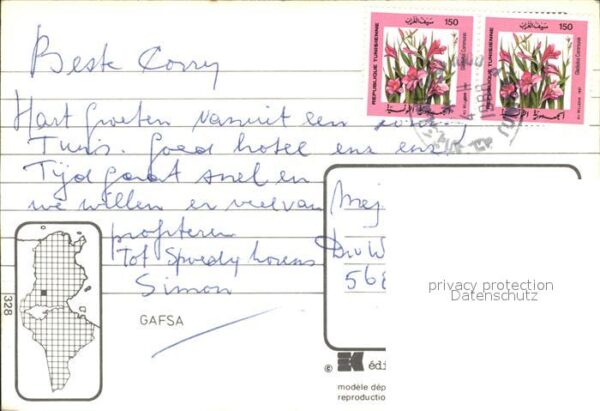 Beste Corry
Hart Groeten vanuit een
Tunis. Goed hotel enz enz
Tijd gaat snel en
we willen er veel van
profiteren
Tot Spoedig horens
Simon
GAFSA
328
REPUBLIQUE TUNISIENNE
سيف الغراب
150
Gladiolus Communis
REPUBLIQUE TUNISIENNE
سيف الغراب
150
Gladiolus Communis
Mej
568
privacy protection
Datenschutz
© édi
modèle dép
reproductio